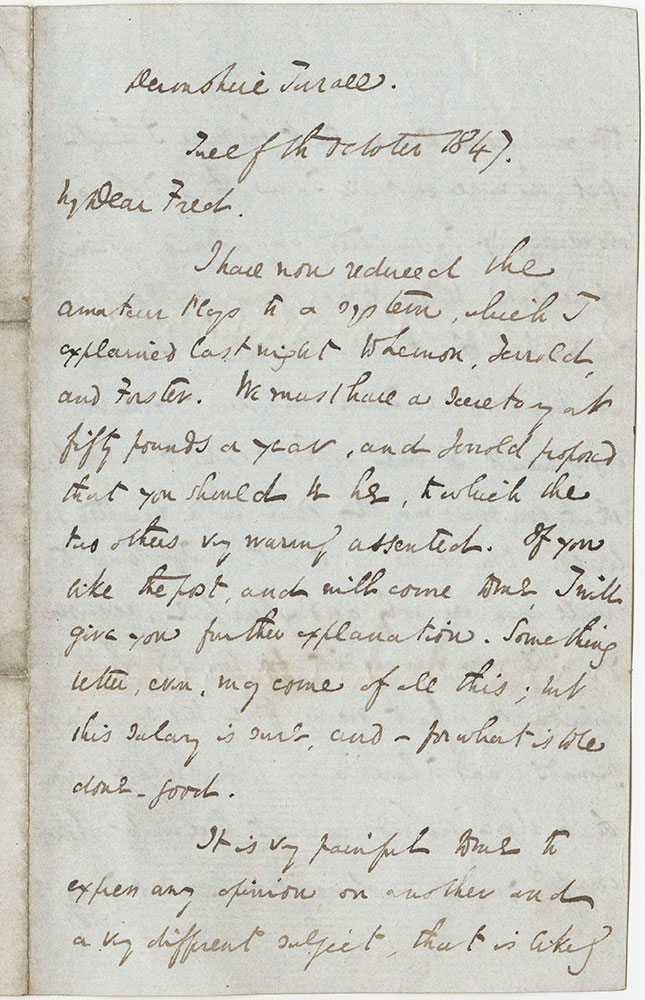 Devonshire Terrace.
Twelfth October 1847.
My Dear Fred.
I have now reduced the
amateur Plays to a system, which I
explained last night to Lemon, Jerrold,
and Forster. We must have a Secretary at
fifty pounds a year, and Jerrold proposed
that you should be he, to which the
two others very warmly assented. If you
like the post, and will come to me, I will
give you further explanation. Something
better, even, may come of all this; but
this salary is sure, and - for what is to be
done - good.
It is very painful to me to
express any opinion on another and
a very different subject, that is likely